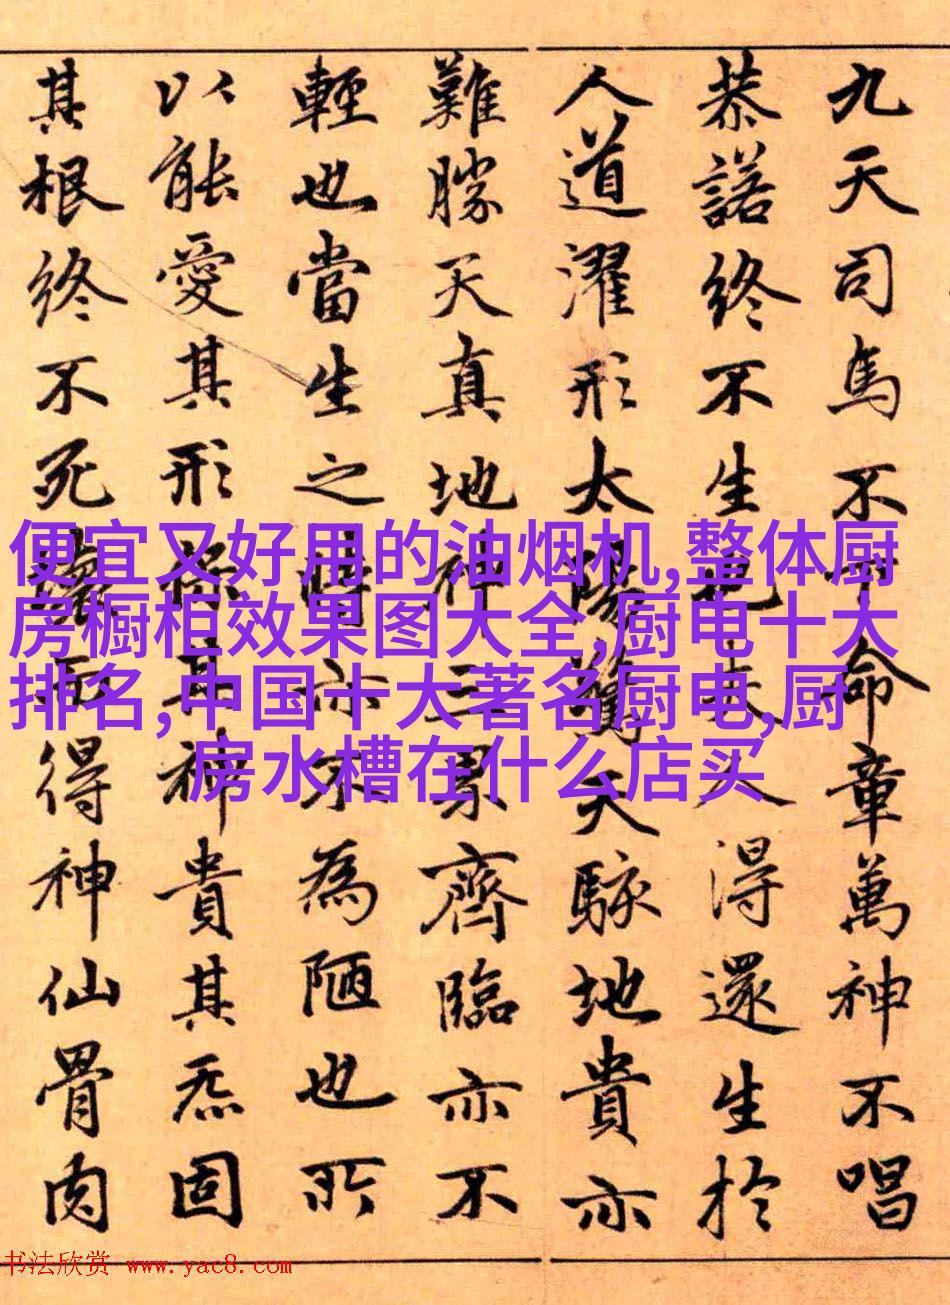 九天司馬不下命章萬神不唱
恭諾終不生也夫人得還生於
人道濯形太陽驚天駭地貴亦
難勝天真地神三界齊臨亦不
輕也當生之時亦不為陋也所
以能愛其形保其神貴其炁固
其根終不死壞而得神仙骨肉
便宜又好用的油烟机,整体厨
房橱柜效果图大全,厨电十大
排名,中国十大著名厨电,厨
房水槽在什么店买
书法欣赏 www.yac8.com